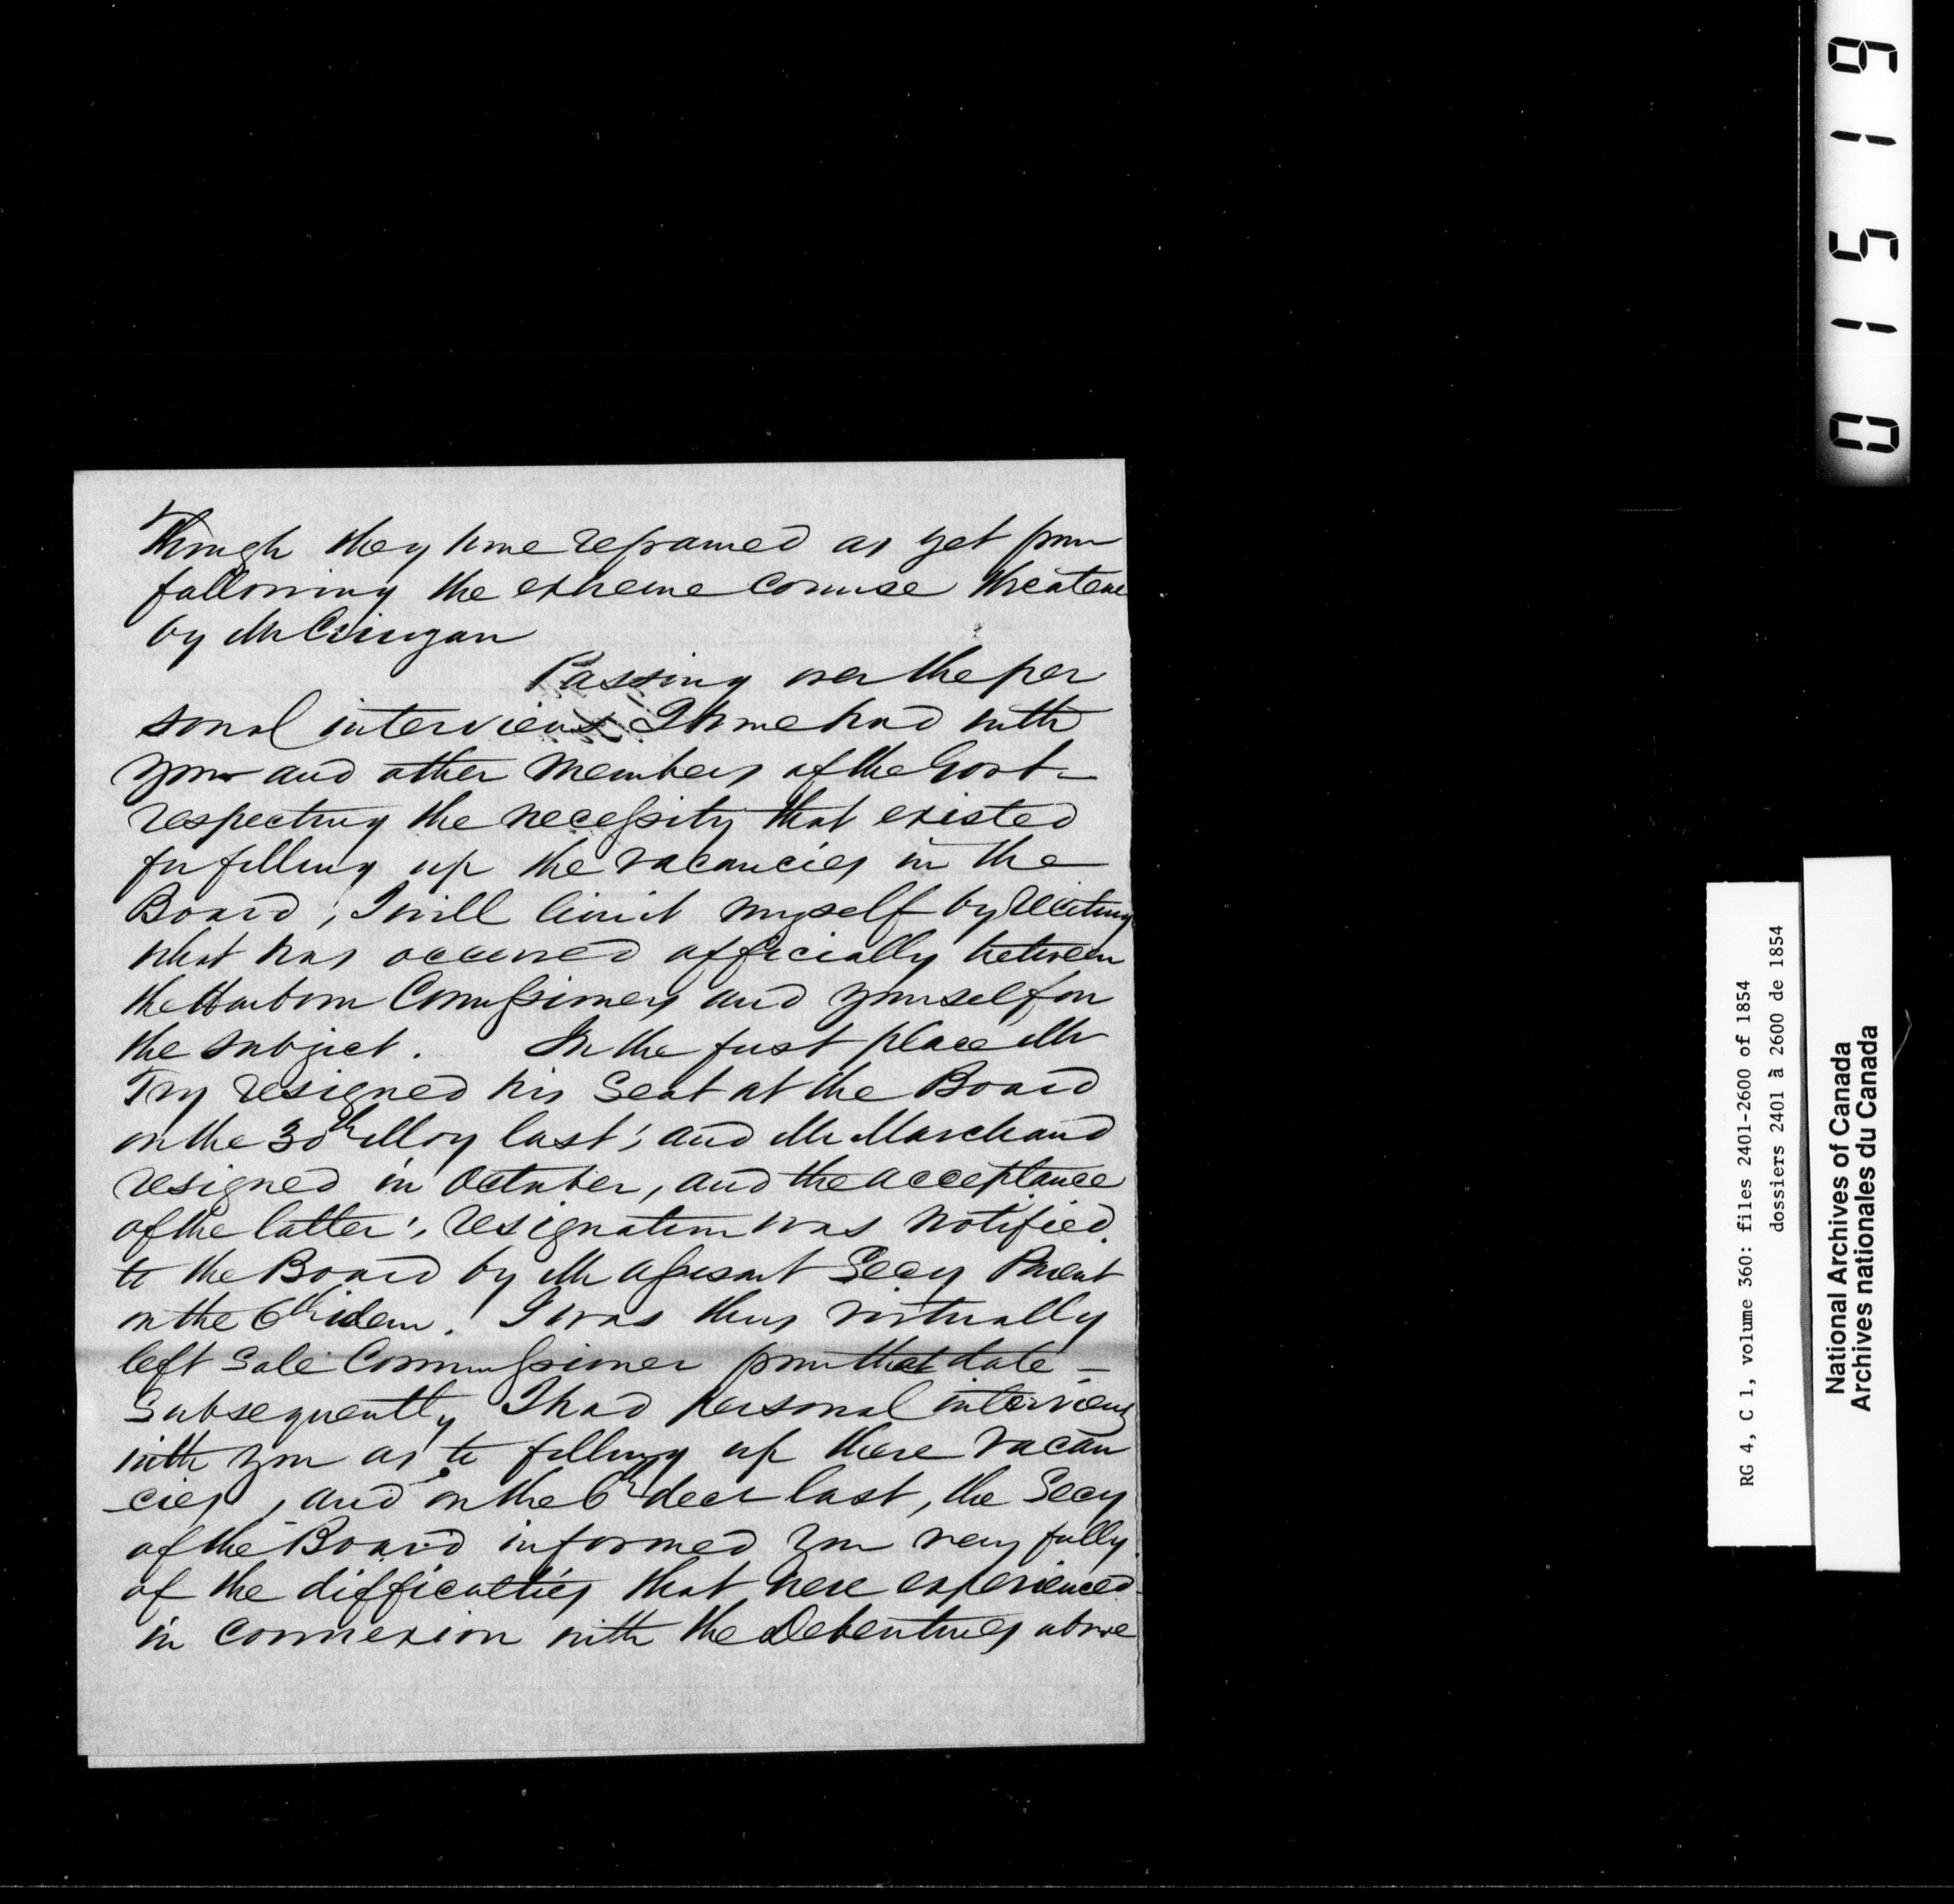 though they have refrained as yet from
following the extreme course threatene
by Mr Cringan
Passing over the per
sonal interviews I have had with
you and other Members of the Govt-
respecting the necessity that existed
for filling up the vacancies in the
Board; I will limit myself by reciting
what has occurred officially between
the Harbour Commissioners and yourself on
the subject. In the first place Mr
Try resigned his Seat at the Board
on the 30th May last; and Mr Marchand
resigned in October, and the acceptance
of the latter's resignation was notified
to the Board by Mr Assisant Secy Parent
on the 6th idem. I was thus virtually
left Sole Commissioner from that date -
Subsequently I had personal interviews
with you as to filling up these vacan
-cies, and on the 6th decr last, the Secy
of the Board informed you very fully
of the difficulties that were experienced
in connexion with the Debentures above
01519
RG 4, C 1, volume 360: files 2401-2600 of 1854
dossiers 2401 à 2600 de 1854
National Archives of Canada
Archives nationales du Canada